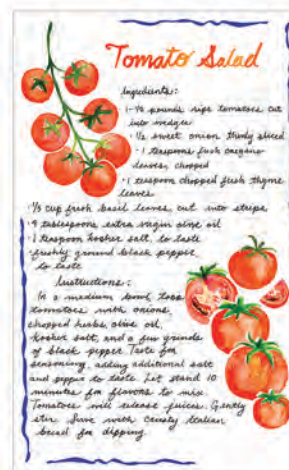 Tomato Salad
Ingredients:
· 1-½ pounds ripe tomatoes cut
into wedges
· ½ sweet onion thinly sliced
· 1 teaspoons fresh oregano
leaves, chopped
· 1 teaspoon chopped fresh thyme
leaves
· ⅓ cup fresh basil leaves, cut into strips
· 4 tablespoons extra virgin olive oil
· 1 teaspoon kosher salt, to taste
· freshly ground black pepper
to taste
Instructions:
In a medium bowl, toss
tomatoes with onions,
chopped herbs, olive oil,
kosher salt, and a few grinds
of black pepper Taste for
seasoning, adding additional salt
and pepper to taste. Let stand 10
minutes for flavors to mix.
Tomatoes will release juices. Gently
stir Serve with crusty Italian
bread for dipping.